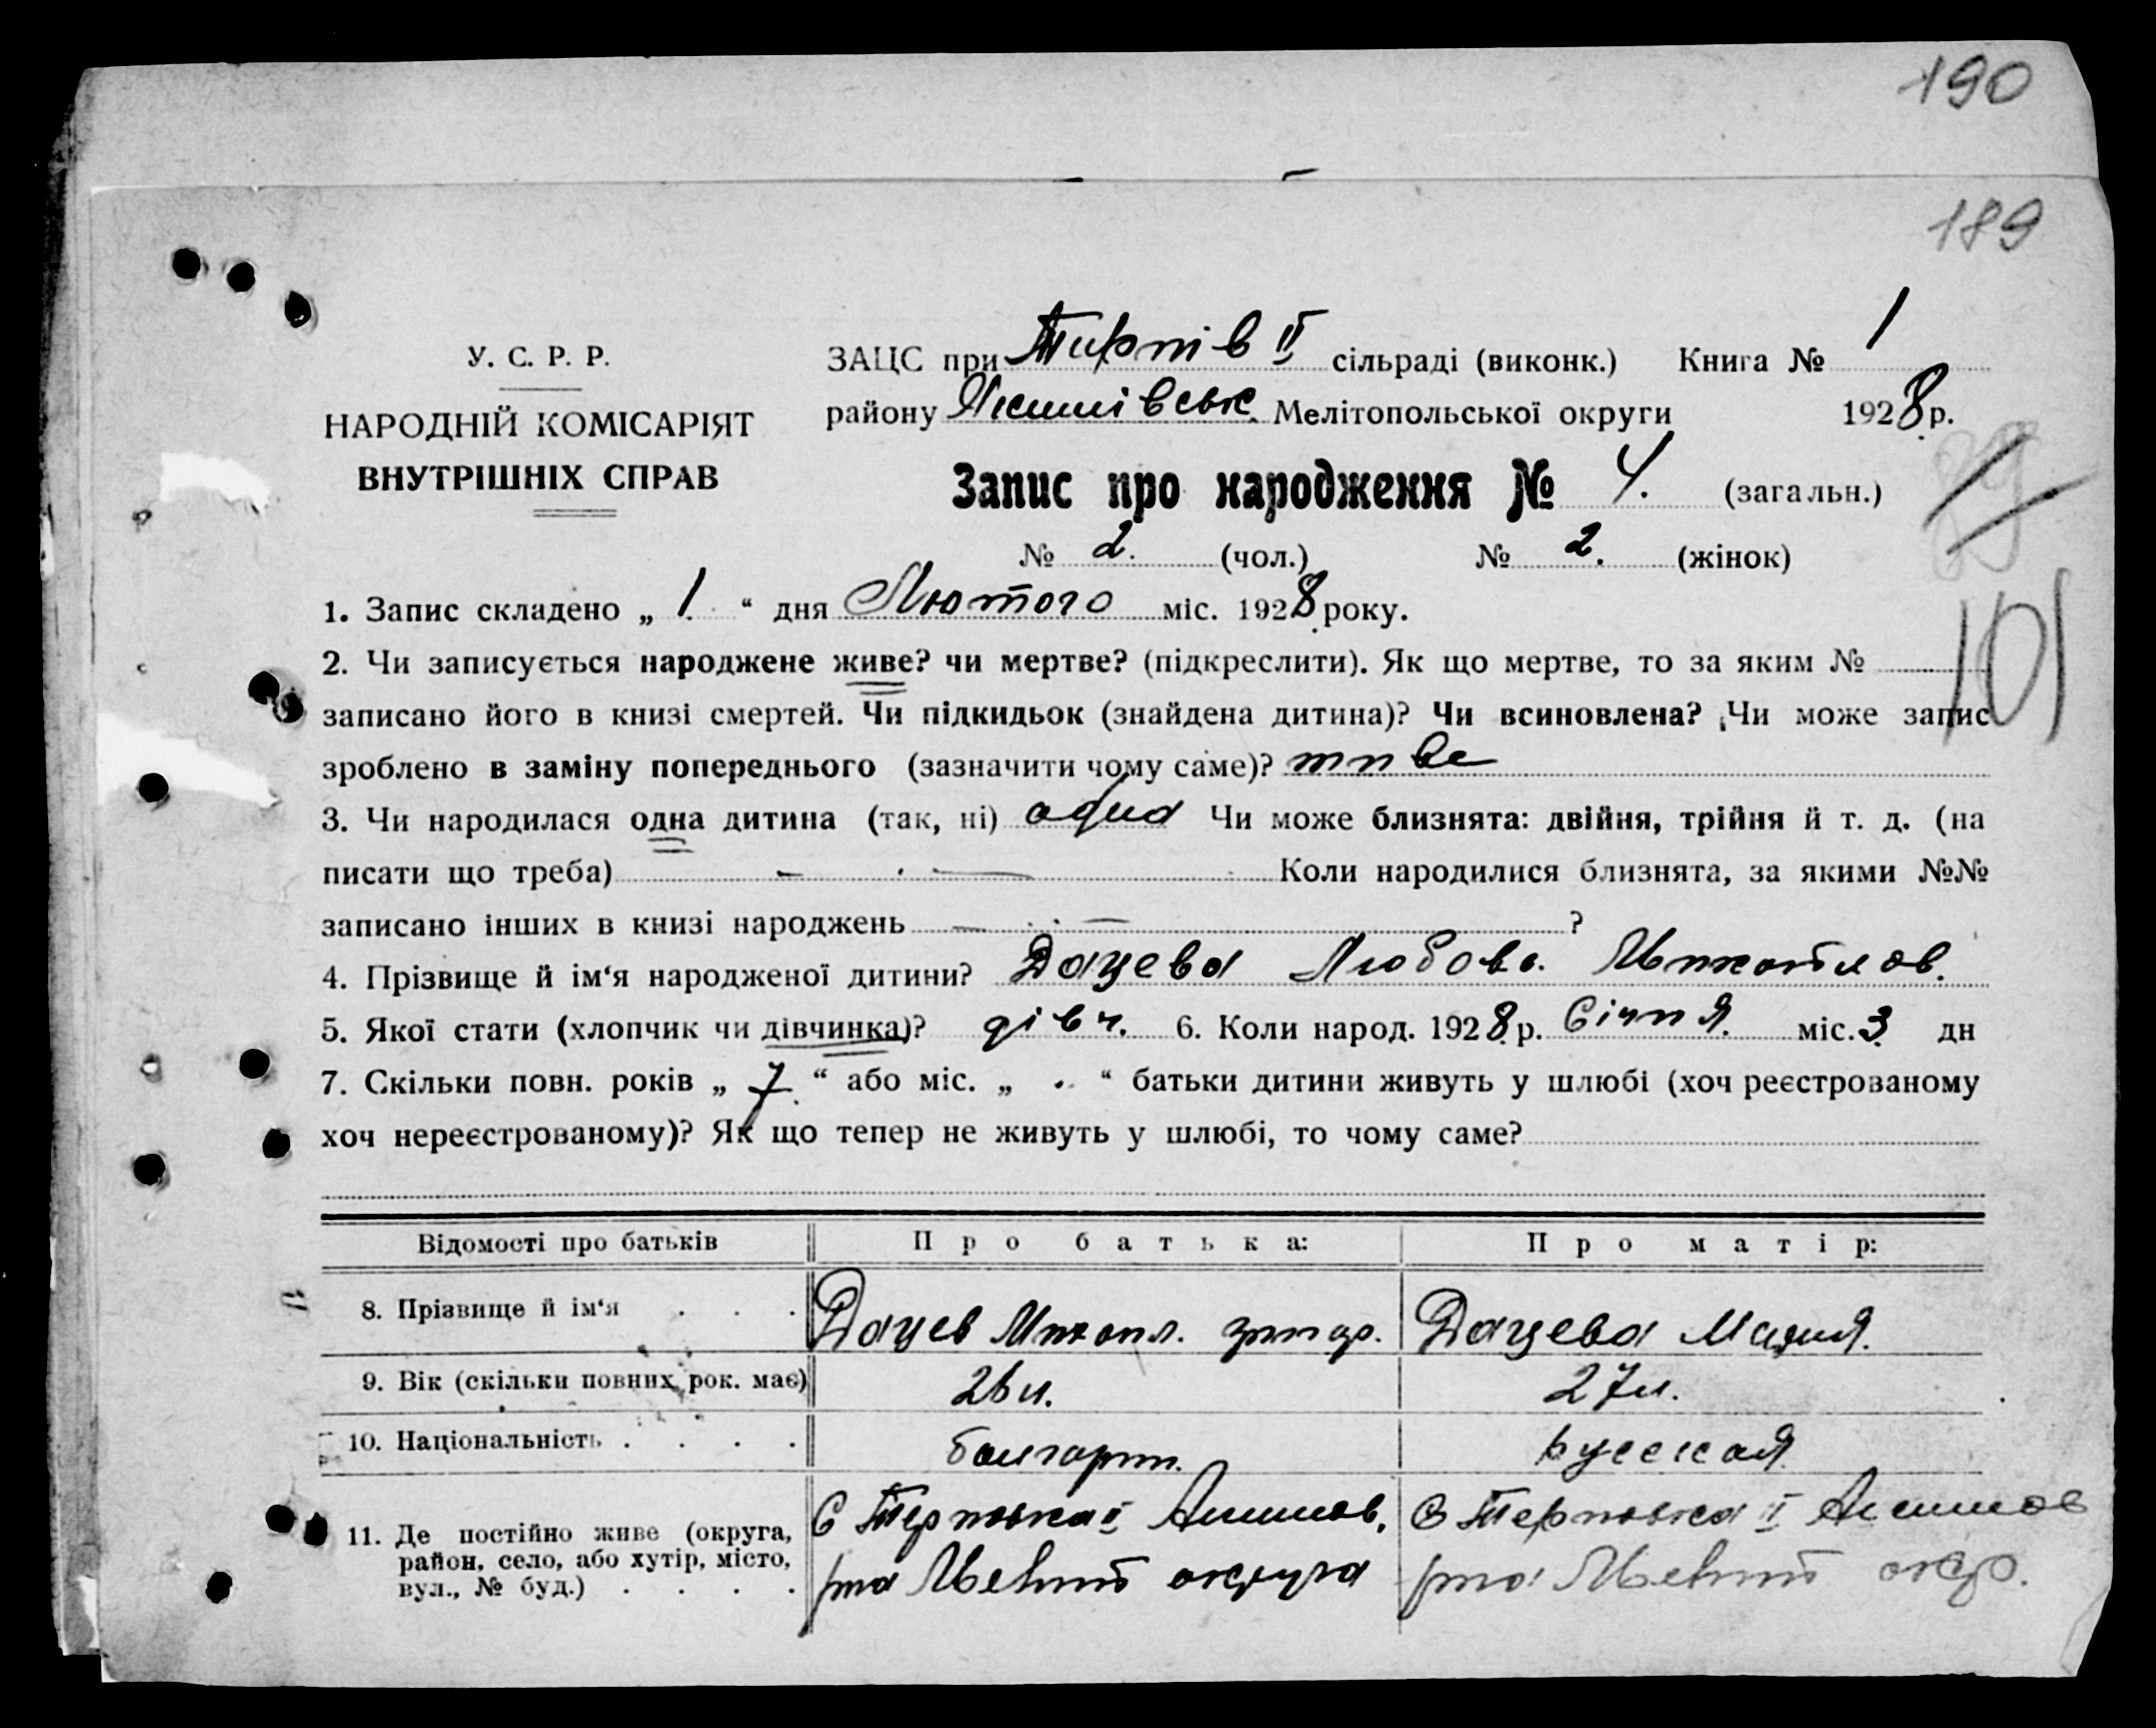 190
189
У. С. Р. Р.
НАРОДНІЙ КОМІСАРІЯТ
ВНУТРІШНІХ СПРАВ
ЗАЦС при Тирнів II сільраді (виконк.) Книга № 1
району Якимівськ. Мелітопольської округи 1928 р.
Запис про народження № 4. (загальн.)
№ 2. (чол.) № 2. (жінок)
101
1. Запис складено „ 1. “ дня Лютого міс. 1928 року.
2. Чи записується народжене живе? чи мертве? (підкреслити). Як що мертве, то за яким №
записано його в книзі смертей. Чи підкидьок (знайдена дитина)? Чи всиновлена? Чи може запис
зроблено в заміну попереднього (зазначити чому саме)?
3. Чи народилася одна дитина (так, ні) одна Чи може близнята: двійня, трійня й т. д. (на
писати що треба) — . — Коли народилися близнята, за якими №№
записано інших в книзі народжень — . . — ?
4. Прізвище й ім‘я народженої дитини? Дацева Любовь
5. Якої стати (хлопчик чи дівчинка)? дівч. 6. Коли народ. 1928 р. Січня. міс. 3 дн
7. Скільки повн. років „ 7. “ або міс. „ “ батьки дитини живуть у шлюбі (хоч реєстрованому
хоч нереєстрованому)? Як що тепер не живуть у шлюбі, то чому саме?
Відомості про батьків Про батька: Про матір:
8. Прізвище й ім‘я . . . Дацев Дацева Мария.
9. Вік (скільки повних рок. має) 26 л. 27 л.
10. Національність . . . . болгарин. русская
11. Де постійно живе (округа, С Терновка II Акимов, С Терновка II Акимов
район, село, або хутір, місто, р-на Мелит округа р-на Мелит окр.
вул., № буд.) . . . .